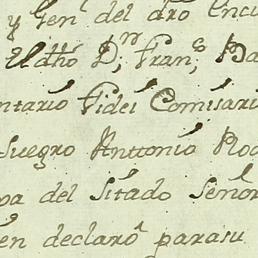 y Gen.l del dro Encu
El dho D.n Fran.co Ba
entario Fidei Comisari
Suegro Anttonio Rod
va del Sitado Señor
en declaro para su